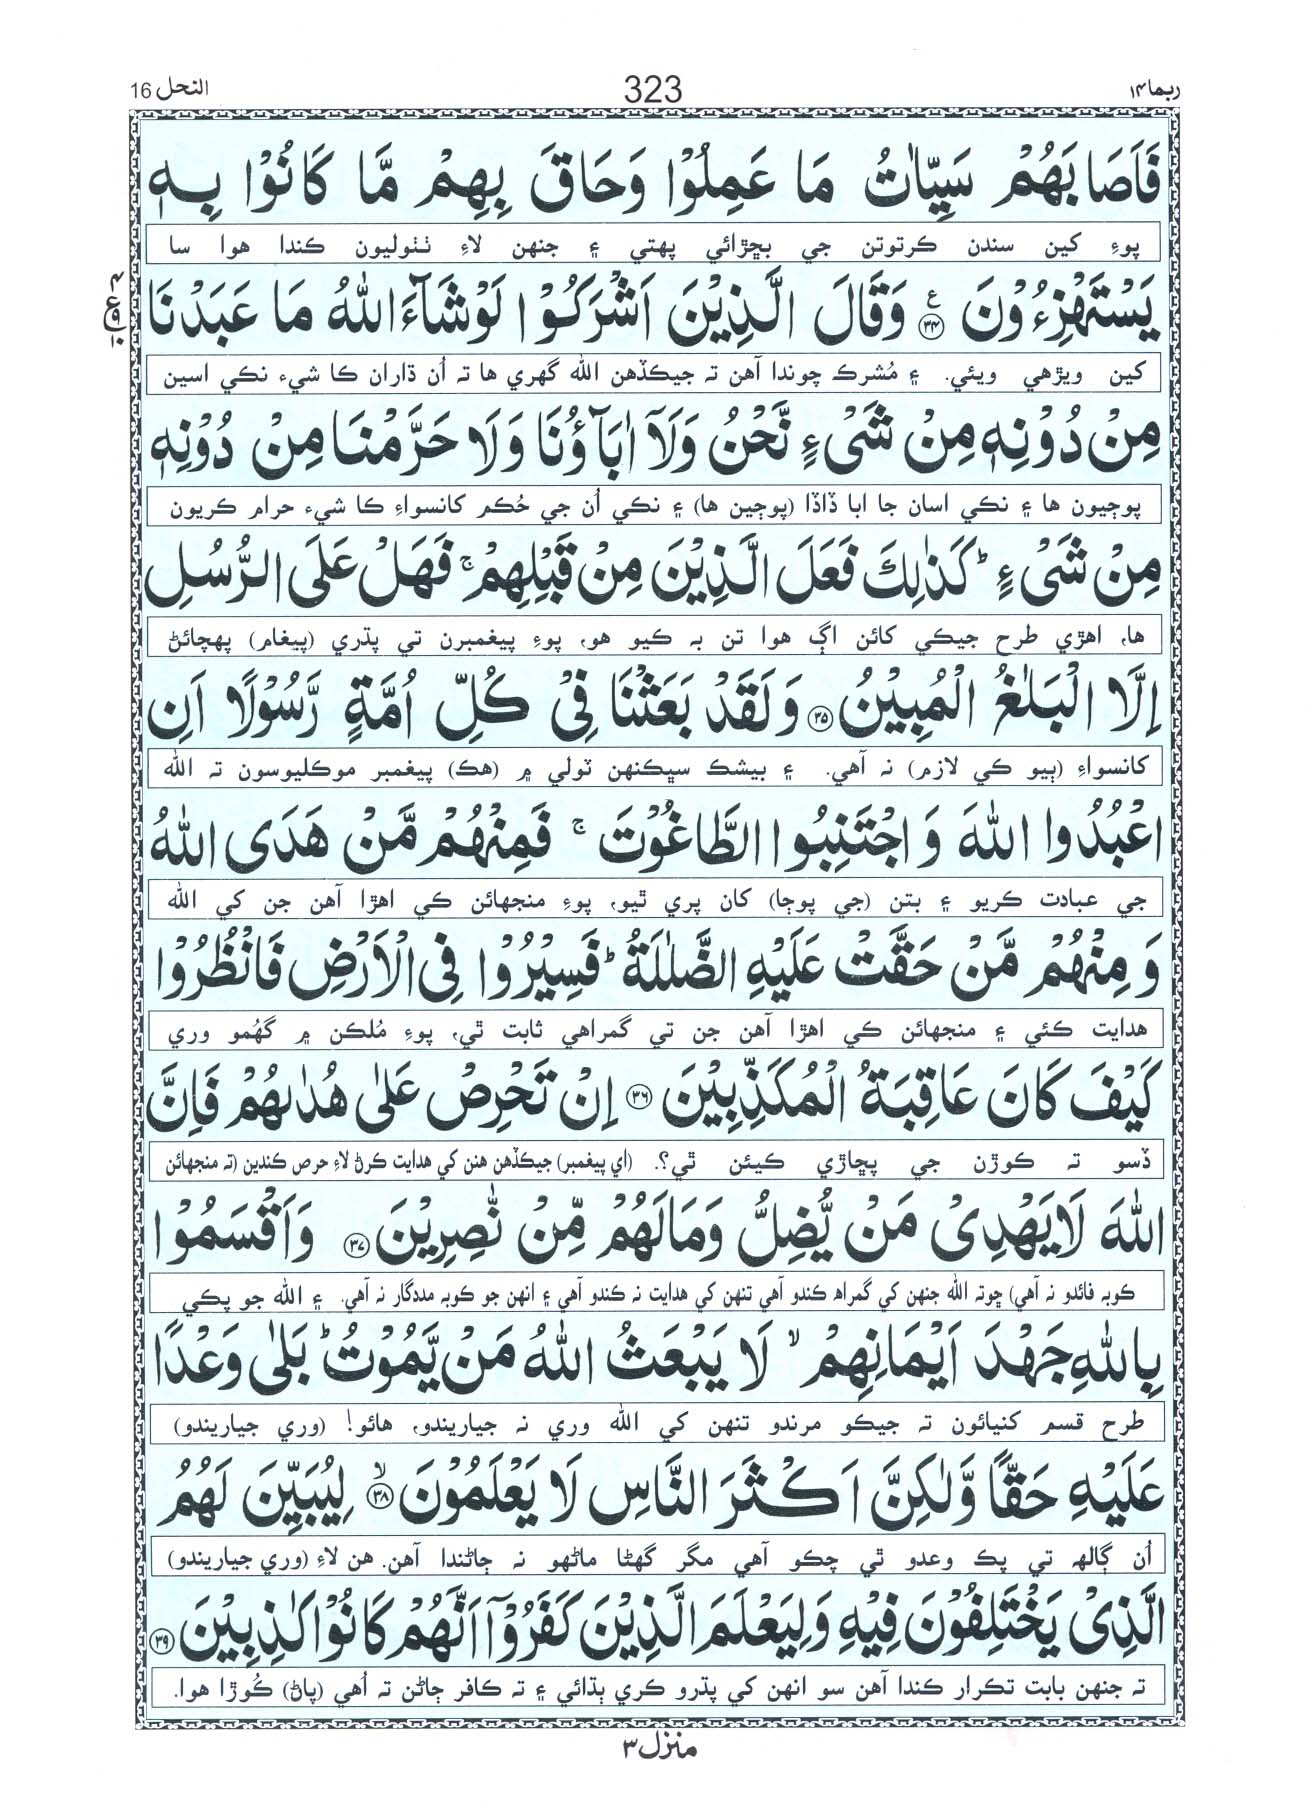 ربما۱۴ 323 النحل 16
فَاَصَابَهُمْ سَيِّاٰتُ مَا عَمِلُوْا وَحَاقَ بِهِمْ مَّا كَانُوْا بِهٖ
پوءِ کين سندن ڪرتوتن جي بڇڙائي پهتي ۽ جنهن لاءِ ٺٺوليون ڪندا هوا سا
يَسْتَهْزِءُوْنَ ۳۴ ع وَقَالَ الَّذِيْنَ اَشْرَكُوْا لَوْشَآءَ اللّٰهُ مَا عَبَدْنَا
کين ويڙهي ويئي. ۽ مُشرڪ چوندا آهن تہ جيڪڏهن الله گھري ها تہ اُن ڌاران ڪا شيء نڪي اسين
مِنْ دُوْنِهٖ مِنْ شَىْءٍ نَّحْنُ وَلَآ اٰبَآؤُنَا وَلَا حَرَّمْنَا مِنْ دُوْنِهٖ
پوڄيون ها ۽ نڪي اسان جا ابا ڏاڏا (پوڄين ها) ۽ نڪي اُن جي حُڪم کانسواءِ ڪا شيء حرام ڪريون
مِنْ شَىْءٍ ؕ كَذٰلِكَ فَعَلَ الَّذِيْنَ مِنْ قَبْلِهِمْ ۚ فَهَلْ عَلَى الرُّسُلِ
ها، اهڙي طرح جيڪي کائن اڳ هوا تن بہ ڪيو هو، پوءِ پيغمبرن تي پڌري (پيغام) پهچائڻ
اِلَّا الْبَلٰغُ الْمُبِيْنُ ۳۵ وَلَقَدْ بَعَثْنَا فِىْ كُلِّ اُمَّةٍ رَّسُوْلًا اَنِ
کانسواءِ (ٻيو ڪي لازم) نہ آهي. ۽ بيشڪ سڀڪنهن ٽولي ۾ (هڪ) پيغمبر موڪليوسون تہ الله
اعْبُدُوا اللّٰهَ وَاجْتَنِبُوا الطَّاغُوْتَ ۚ فَمِنْهُمْ مَّنْ هَدَى اللّٰهُ
جي عبادت ڪريو ۽ بتن (جي پوڄا) کان پري ٿيو، پوءِ منجھائن ڪي اهڙا آهن جن کي الله
وَمِنْهُمْ مَّنْ حَقَّتْ عَلَيْهِ الضَّلٰلَةُ ؕ فَسِيْرُوْا فِى الْاَرْضِ فَانْظُرُوْا
هدايت ڪئي ۽ منجھائن ڪي اهڙا آهن جن تي گمراهي ثابت ٿي، پوءِ مُلڪن ۾ گھُمو وري
كَيْفَ كَانَ عَاقِبَةُ الْمُكَذِّبِيْنَ ۳۶ اِنْ تَحْرِصْ عَلٰى هُدٰىهُمْ فَاِنَّ
ڏسو تہ ڪوڙن جي پڇاڙي ڪيئن ٿي؟. (اي پيغمبر) جيڪڏهن هنن کي هدايت ڪرڻ لاءِ حرص ڪندين (تہ منجھائن
اللّٰهَ لَايَهْدِىْ مَنْ يُّضِلُّ وَمَالَهُمْ مِّنْ نّٰصِرِيْنَ ۳۷ وَاَقْسَمُوْا
ڪوبہ فائدو نہ آهي) ڇوتہ الله جنهن کي گمراہ ڪندو آهي تنهن کي هدايت نہ ڪندو آهي ۽ انهن جو ڪوبہ مددگار نہ آهي. ۽ الله جو پڪي
بِاللّٰهِ جَهْدَ اَيْمَانِهِمْ ۙ لَا يَبْعَثُ اللّٰهُ مَنْ يَّمُوْتُ ؕ بَلٰى وَعْدًا
طرح قسم کنيائون تہ جيڪو مرندو تنهن کي الله وري نہ جياريندو، هائو! (وري جياريندو)
عَلَيْهِ حَقًّا وَّلٰكِنَّ اَكْثَرَ النَّاسِ لَا يَعْلَمُوْنَ ۙ ۳۸ لِيُبَيِّنَ لَهُمُ
اُن ڳالهہ تي پڪ وعدو ٿي چڪو آهي مگر گھڻا ماڻھو نہ ڄاڻندا آهن. هن لاءِ (وري جياريندو)
الَّذِىْ يَخْتَلِفُوْنَ فِيْهِ وَلِيَعْلَمَ الَّذِيْنَ كَفَرُوْٓا اَنَّهُمْ كَانُوْا كٰذِبِيْنَ ۳۹
تہ جنهن بابت تڪرار ڪندا آهن سو انهن کي پڌرو ڪري ٻڌائي ۽ تہ ڪافر ڄاڻن تہ اُهي (پاڻ) ڪُوڙا هوا.
منزل۳